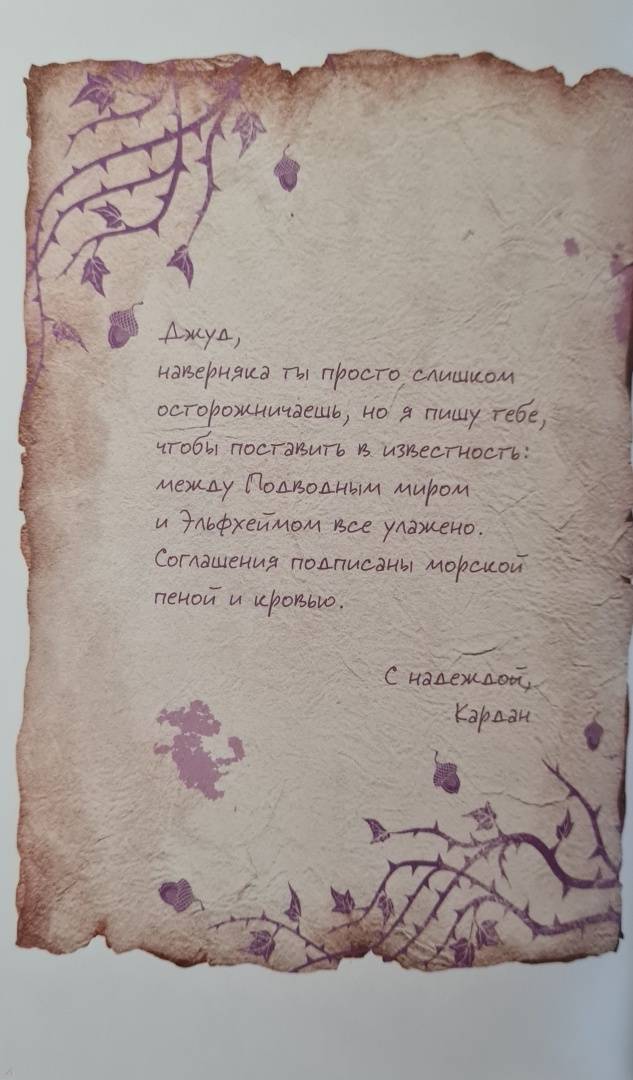 Джуд,
наверняка ты просто слишком
осторожничаешь, но я пишу тебе,
чтобы поставить в известность:
между Подводным миром
и Эльфхеймом все улажено.
Соглашения подписаны морской
пеной и кровью.
С надеждой,
Кардан